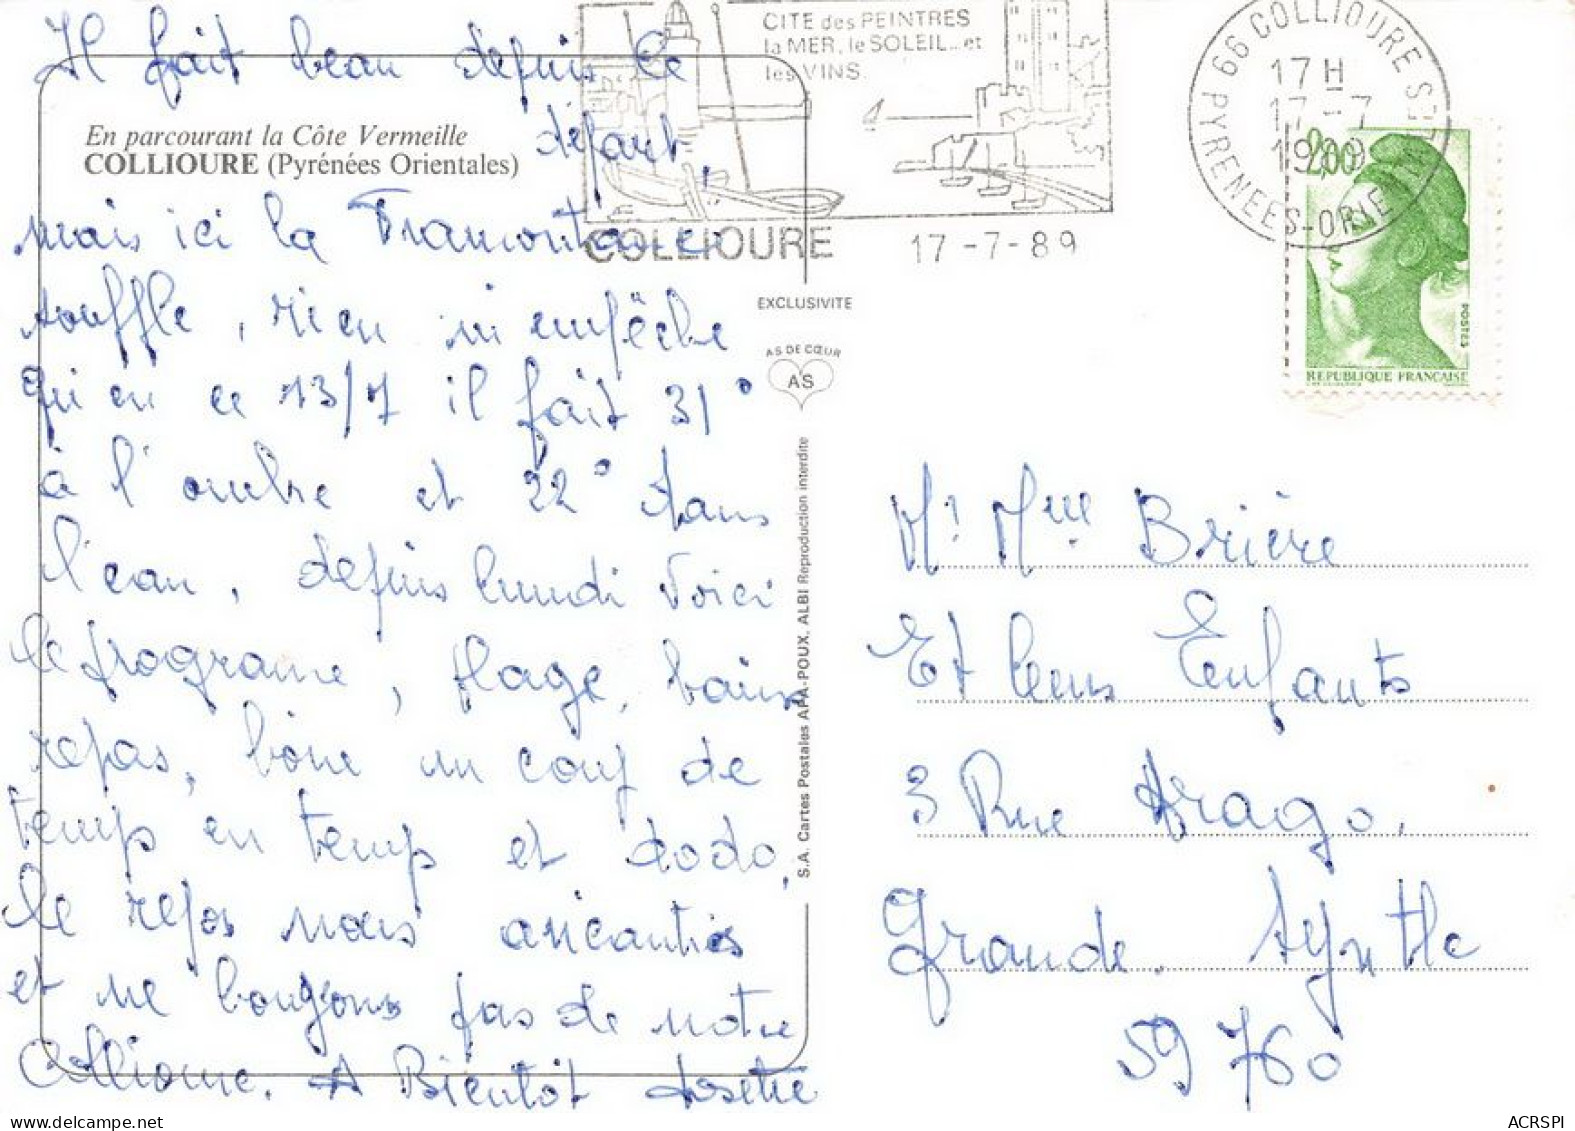 Il fait beau depuis le
départ,
En parcourant la Côte Vermeille
COLLIOURE (Pyrénées Orientales)
mais ici la Tramontane
souffle, rien ni empêche
qu'en ce 13/7 il fait 31°
à l'ombre et 22° dans
l'eau, depuis lundi voici
le programe, plage, bains
repas, boire un coup de
temps en temps et dodo,
le repos nous
et ne bougeons pas de notre
Collioure. A Bientôt Josette
CITE des PEINTRES
la MER, le SOLEIL... et
les VINS
COLLIOURE
17-7-89
66 COLLIOURE
PYRENEES-ORIENTALES
17 H
17-7
1989
2,00
POSTES
REPUBLIQUE FRANCAISE
EXCLUSIVITE
AS DE CŒUR
AS
S.A. Cartes Postales APA-POUX, ALBI Reproduction interdite
Mr Mme Brière
Et leurs Enfants
3 Rue Arago.
Grande. Synthe
59760
ACRSPI